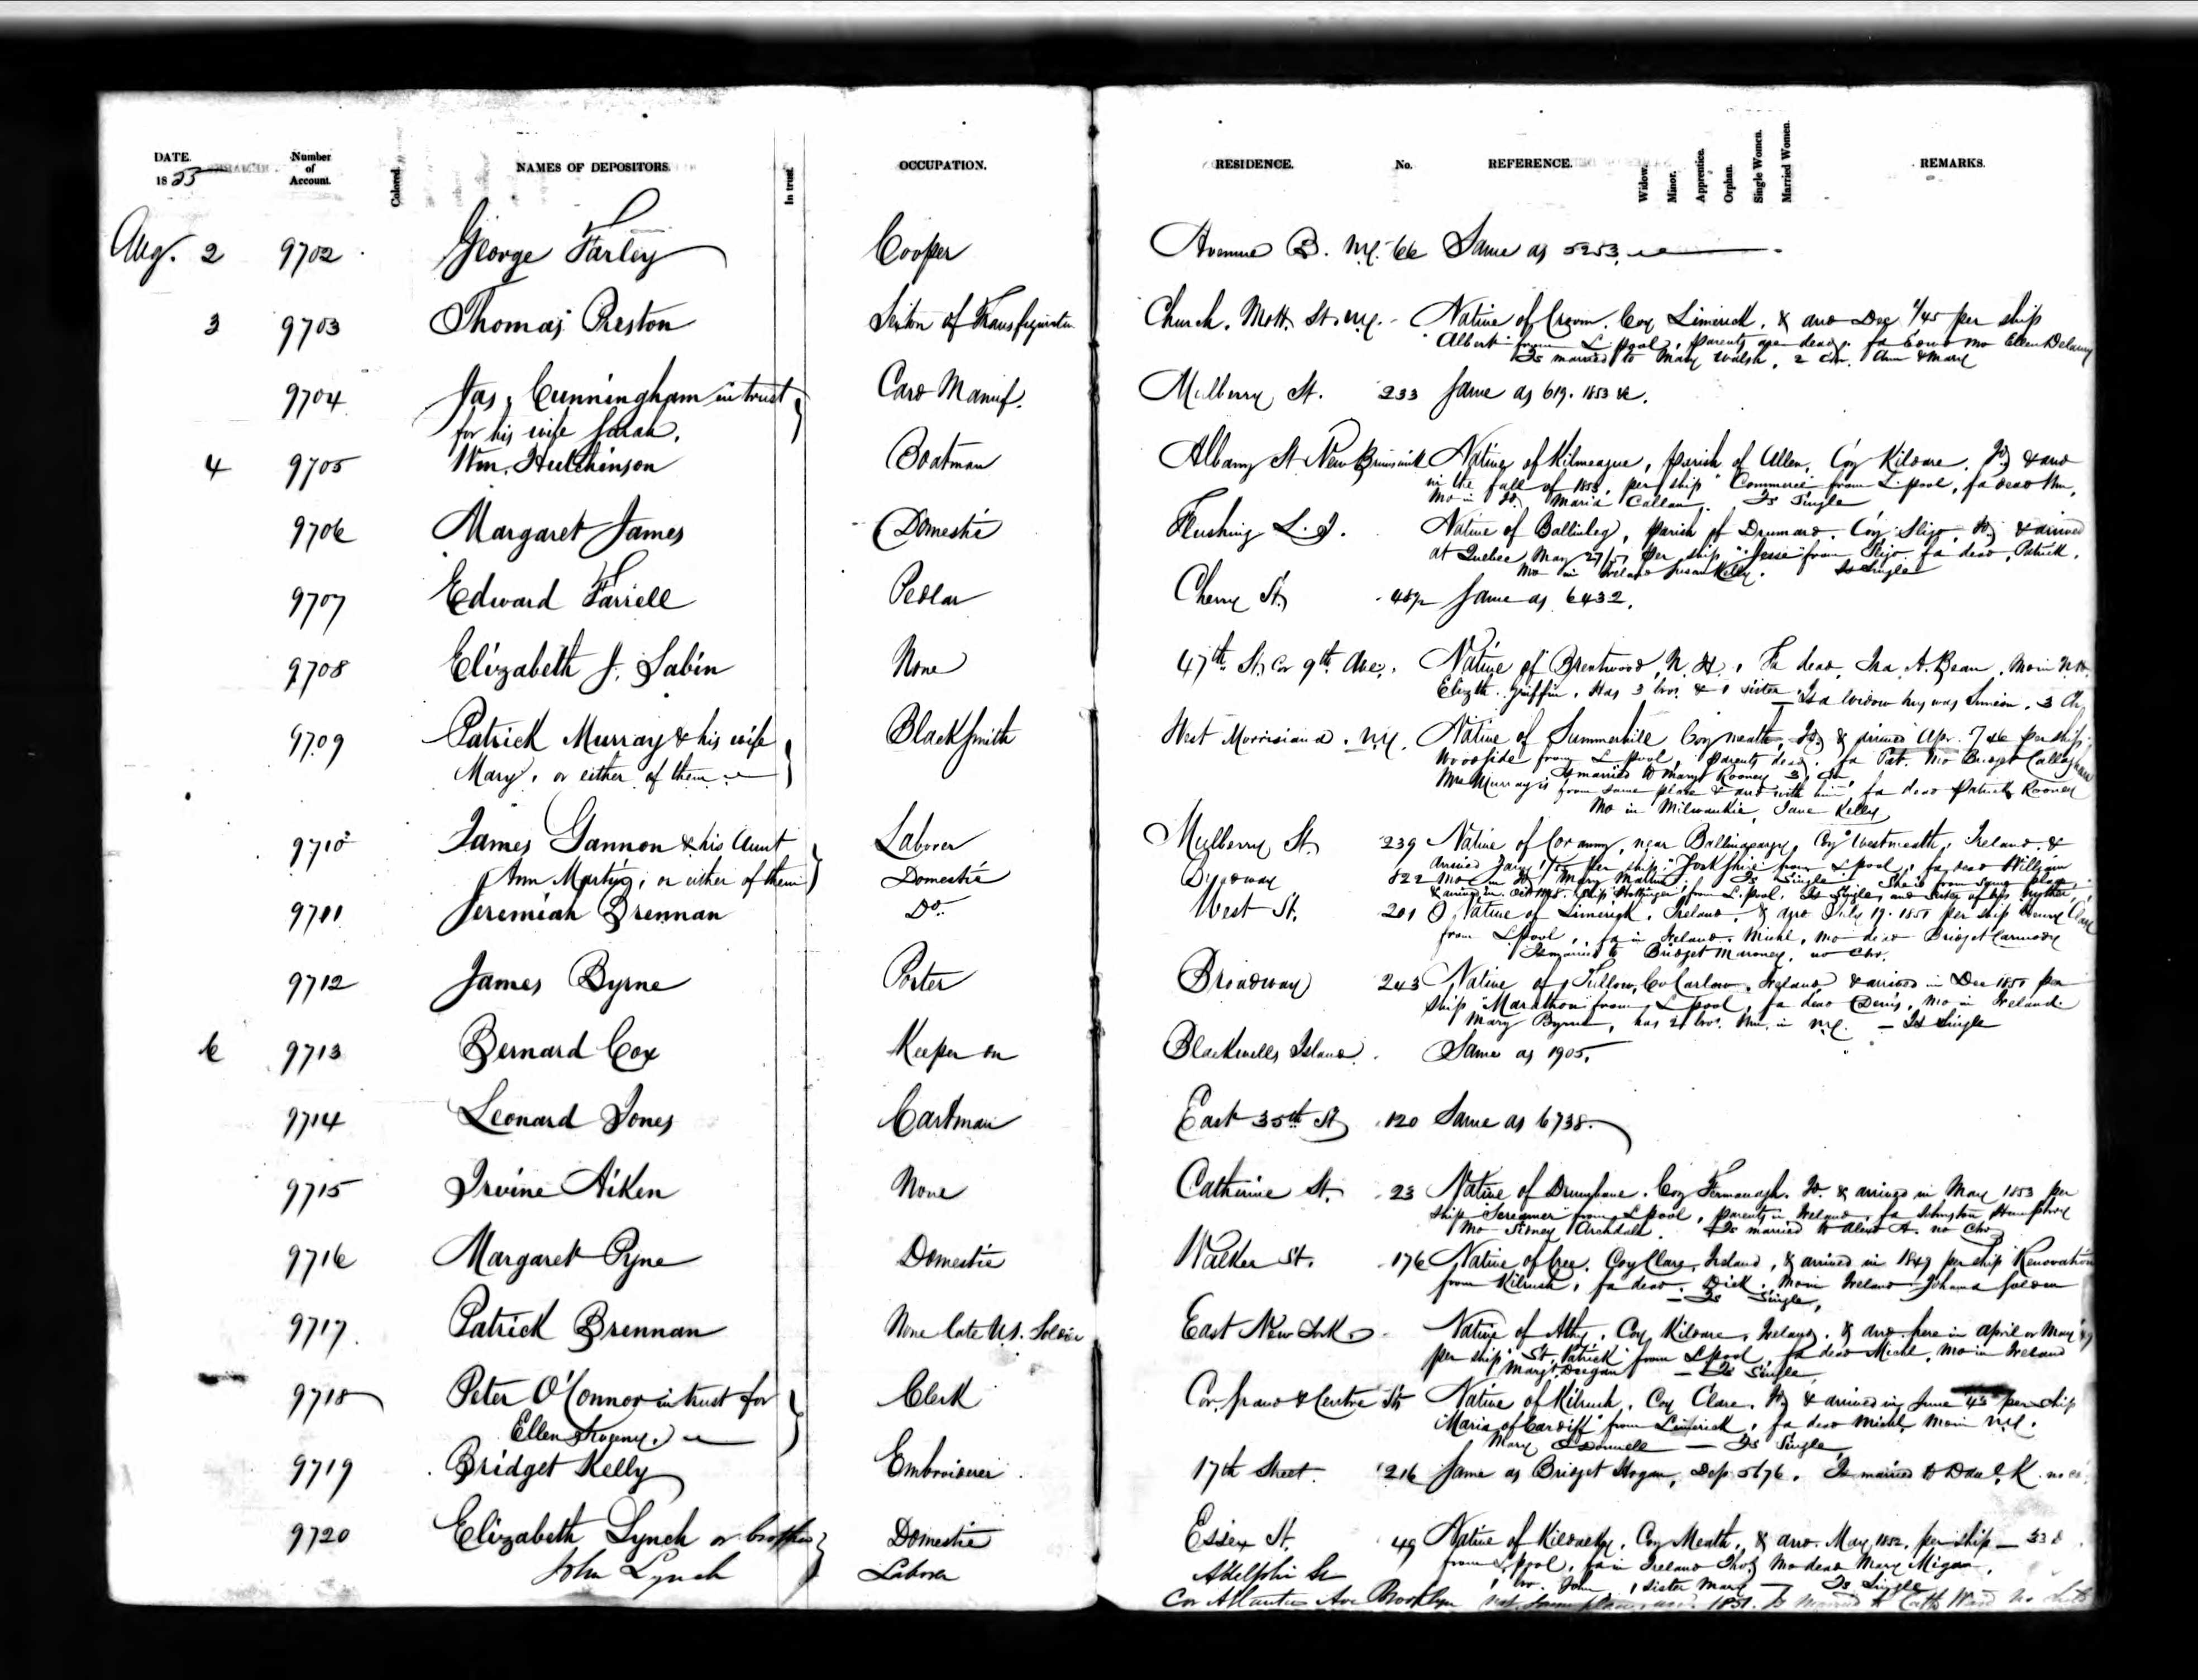 DATE. 1855 Number of Account. Colored. NAMES OF DEPOSITORS. In trust. OCCUPATION. RESIDENCE. No. REFERENCE. Widow. Minor. Apprentice. Orphan. Single Women. Married Women. REMARKS.
Aug. 2 9702 George Farley Cooper Avenue B. N.Y. 66 Same as 5253.
3 9703 Thomas Preston Sexton of Transfiguratn Church. Mott St. N.Y. Native of Croom. Coy Limerick. & arrd Dec 1/45 per ship
"Albert" from L.pool, parents are dead, fa Edwd mo Ellen Delany
Is married to Mary Walsh, 2 chn. Ann & Mary
9704 Jas. Cunningham in trust Card Manuf. Mulberry St. 233 Same as 619. 1853 &c.
for his wife Sarah.
4 9705 Wm. Hutchinson Boatman Albany St New Brunswick Native of Kilmeague, parish of Allen, Coy Kildare. Id & arrd
in the fall of 1853, per ship "Commerce" from L.pool, fa dead Wm,
mo in Id. Maria Callan. Is Single
9706 Margaret James Domestic Flushing L.I. Native of Ballinleg, parish of Drumard. Coy Sligo, Id & arrived
at Quebec May 27/51 per ship "Jesse" from Sligo fa dead, Patrick,
Mo in Ireland Susan Kelly. Is Single
9707 Edward Farrell Pedlar Cherry St. 489 Same as 6432.
9708 Elizabeth J. Sabin None 47th St. Cor 9th Ave. Native of Brentwood, N.H., Fa dead, Ira A. Bean, Mo in N.H.
Elizth Griffin. Has 3 bros. & 1 sister Is a widow hus was Simeon, 3 Ch,
9709 Patrick Murray & his wife Blacksmith West Morrisiana. N.Y. Native of Summerhill Coy Meath, Id & arrived Apr. 7 46 per ship
Mary, or either of them Woodside from L.pool, parents dead, fa Pat. Mo Bridget Callaghan
Is married to Mary Rooney 3 chn
Mrs Murray is from same place & arrd with him, fa dead Patrick Rooney
Mo in Milwaukie, Jane Kelly
9710 James Gannon & his Aunt Laborer Mulberry St. 239 Native of, near Ballinacargy, Coy Westmeath, Ireland. &
Ann Martin, or either of them Domestic Broadway 822 arrived Jany per ship "Yorkshire" from L.pool, fa dead William
mo in Id. Mary Martin, Is Single She is from same place
& arrived in Oct 1848. Ship "Hottinger" from L.pool, Is Single, and sister of his mother
9711 Jeremiah Brennan Do. West St. 201 Native of Limerick, Ireland & arrd July 19. 1851 per ship Henry Clay
from L.pool, fa in Ireland. Michl, mo dead Bridget Carmody
Is married to Bridget Maroney, no chn.
9712 James Byrne Porter Broadway 243 Native of Tullow, Co Carlow, Ireland & arrived in Dec 1851 per
ship "Marathon" from L.pool, fa dead Denis, mo in Ireland
Mary Byrne, has 1 bro. Wm. in N.Y. — Is Single
6 9713 Bernard Cox Keeper on Blackwells Island. Same as 1905.
9714 Leonard Jones Cartman East 35th St 120 Same as 6738.
9715 Irvine Aiken None Catherine St. 23 Native of Drumbane. Coy Fermanagh. Id. & arrived in May 1853 per
ship "Screamer" from L.pool, parents in Ireland, fa Johnston Humphrey
Mo Sidney Archdale. Is married to Alexd A. no chn
9716 Margaret Pyne Domestic Walker St. 176 Native of Cree. Coy Clare, Ireland, & arrived in 1849 per ship Renovation
from Kilrush, fa dead. Dick. Mo in Ireland Johana
— Is Single,
9717 Patrick Brennan None late U.S. Soldier East New York Native of Athy. Coy Kildare, Ireland. & arrd here in April or May
per ship "St. Patrick" from L.pool, fa dead Michl, mo in Ireland
Margt Deegan — Is Single
9718 Peter O'Connor in trust for Clerk Cor. Grand & Centre Sts Native of Kilrush. Coy Clare. Id & arrived in June 45 per ship
Ellen "Maria of Cardiff" from Limerick, fa dead Michl, mo in N.Y.
Mary O'Donnell — Is Single
9719 Bridget Kelly Embroiderer 17th Street. 216 Same as Bridget Hogan, Dep. 5676. Is married to Danl. K. no ch.
9720 Elizabeth Lynch or brother Domestic Essex St. 49 Native of, Coy Meath, & arrd. May 1852, per ship
John Lynch Laborer Adelphi St from L.pool, fa in Ireland Thos, Mo dead Mary
1 bro. John, 1 sister Mary — Is Single
Cor Atlantic Ave Brooklyn 1851. Is married to Cath Ward no